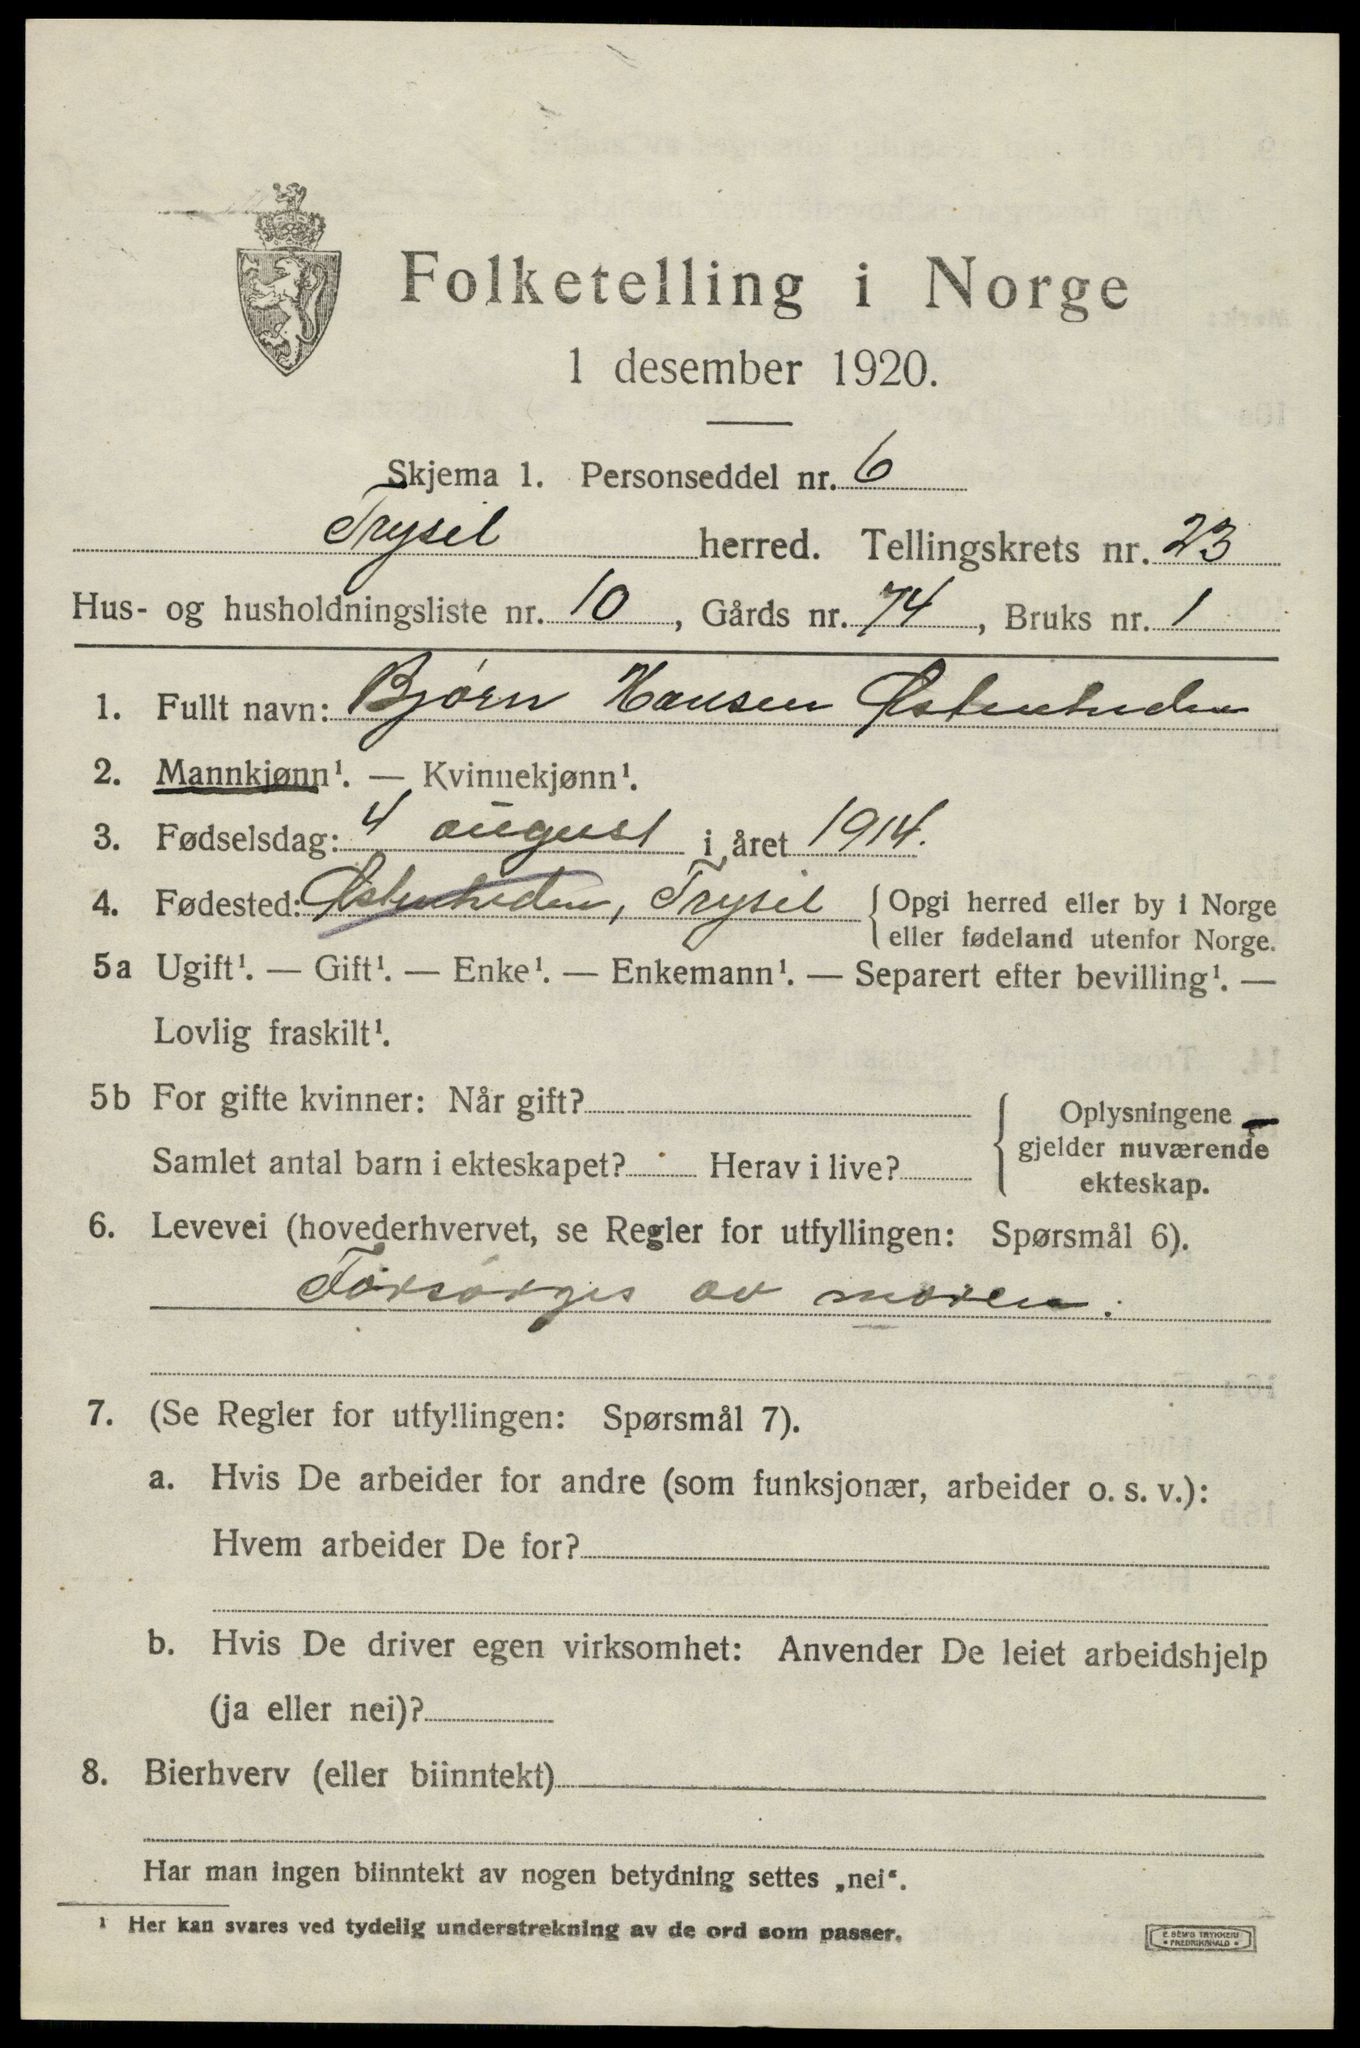 Folketelling i Norge
1 desember 1920.
Skjema 1. Personseddel nr. 6
Trysil herred. Tellingskrets nr. 23
Hus- og husholdningsliste nr. 10, Gårds nr. 74, Bruks nr. 1
1. Fullt navn: Bjørn Hansen Østenheden
2. Mannkjønn¹. — Kvinnekjønn¹.
3. Fødselsdag: 4 august i året 1914.
4. Fødested: Østenheden, Trysil { Opgi herred eller by i Norge
eller fødeland utenfor Norge.
5a Ugift¹. — Gift¹. — Enke¹. — Enkemann¹. — Separert efter bevilling¹. —
Lovlig fraskilt¹.
5b For gifte kvinner: Når gift?
Samlet antal barn i ekteskapet? Herav i live?
{ Oplysningene
gjelder nuværende
ekteskap.
6. Levevei (hovederhvervet, se Regler for utfyllingen: Spørsmål 6).
Forsørges av moren.
7. (Se Regler for utfyllingen: Spørsmål 7).
a. Hvis De arbeider for andre (som funksjonær, arbeider o. s. v.):
Hvem arbeider De for?
b. Hvis De driver egen virksomhet: Anvender De leiet arbeidshjelp
(ja eller nei)?
8. Bierhverv (eller biinntekt)
Har man ingen biinntekt av nogen betydning settes „nei“.
¹ Her kan svares ved tydelig understrekning av de ord som passer.
E. SEM'S TRYKKERI
FREDRIKSHALD